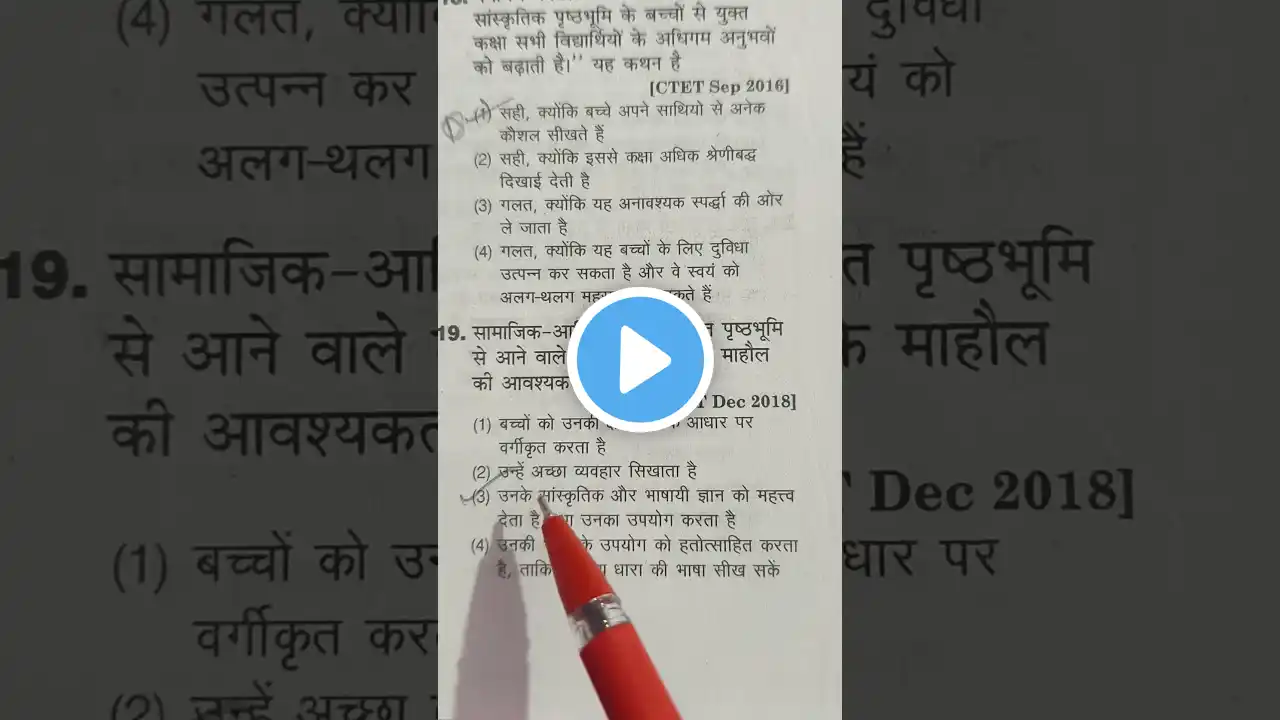 सांस्कृतिक पृष्ठभूमि के बच्चों से युक्त
कक्षा सभी विद्यार्थियों के अधिगम अनुभवों
को बढ़ाती है।'' यह कथन है
[CTET Sep 2016]
(1) सही, क्योंकि बच्चे अपने साथियो से अनेक
कौशल सीखते हैं
(2) सही, क्योंकि इससे कक्षा अधिक श्रेणीबद्ध
दिखाई देती है
(3) गलत, क्योंकि यह अनावश्यक स्पर्द्धा की ओर
ले जाता है
(4) गलत, क्योंकि यह बच्चों के लिए दुविधा
उत्पन्न कर सकता है और वे स्वयं को
अलग-थलग हैं
19. सामाजिक- पृष्ठभूमि
से आने वाले माहौल
की
Dec 2018]
(1) बच्चों को उनकी आधार पर
वर्गीकृत करता है
(2) उन्हें अच्छा व्यवहार सिखाता है
(3) उनके सांस्कृतिक और भाषायी ज्ञान को महत्त्व
देता है उनका उपयोग करता है
(4) उनकी के उपयोग को हतोत्साहित करता
है, ताकि धारा की भाषा सीख सकें